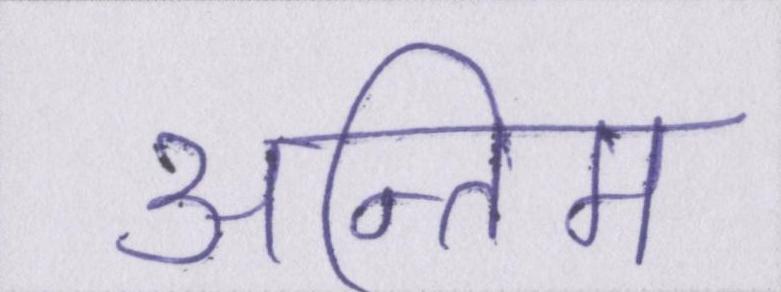 अन्तिम